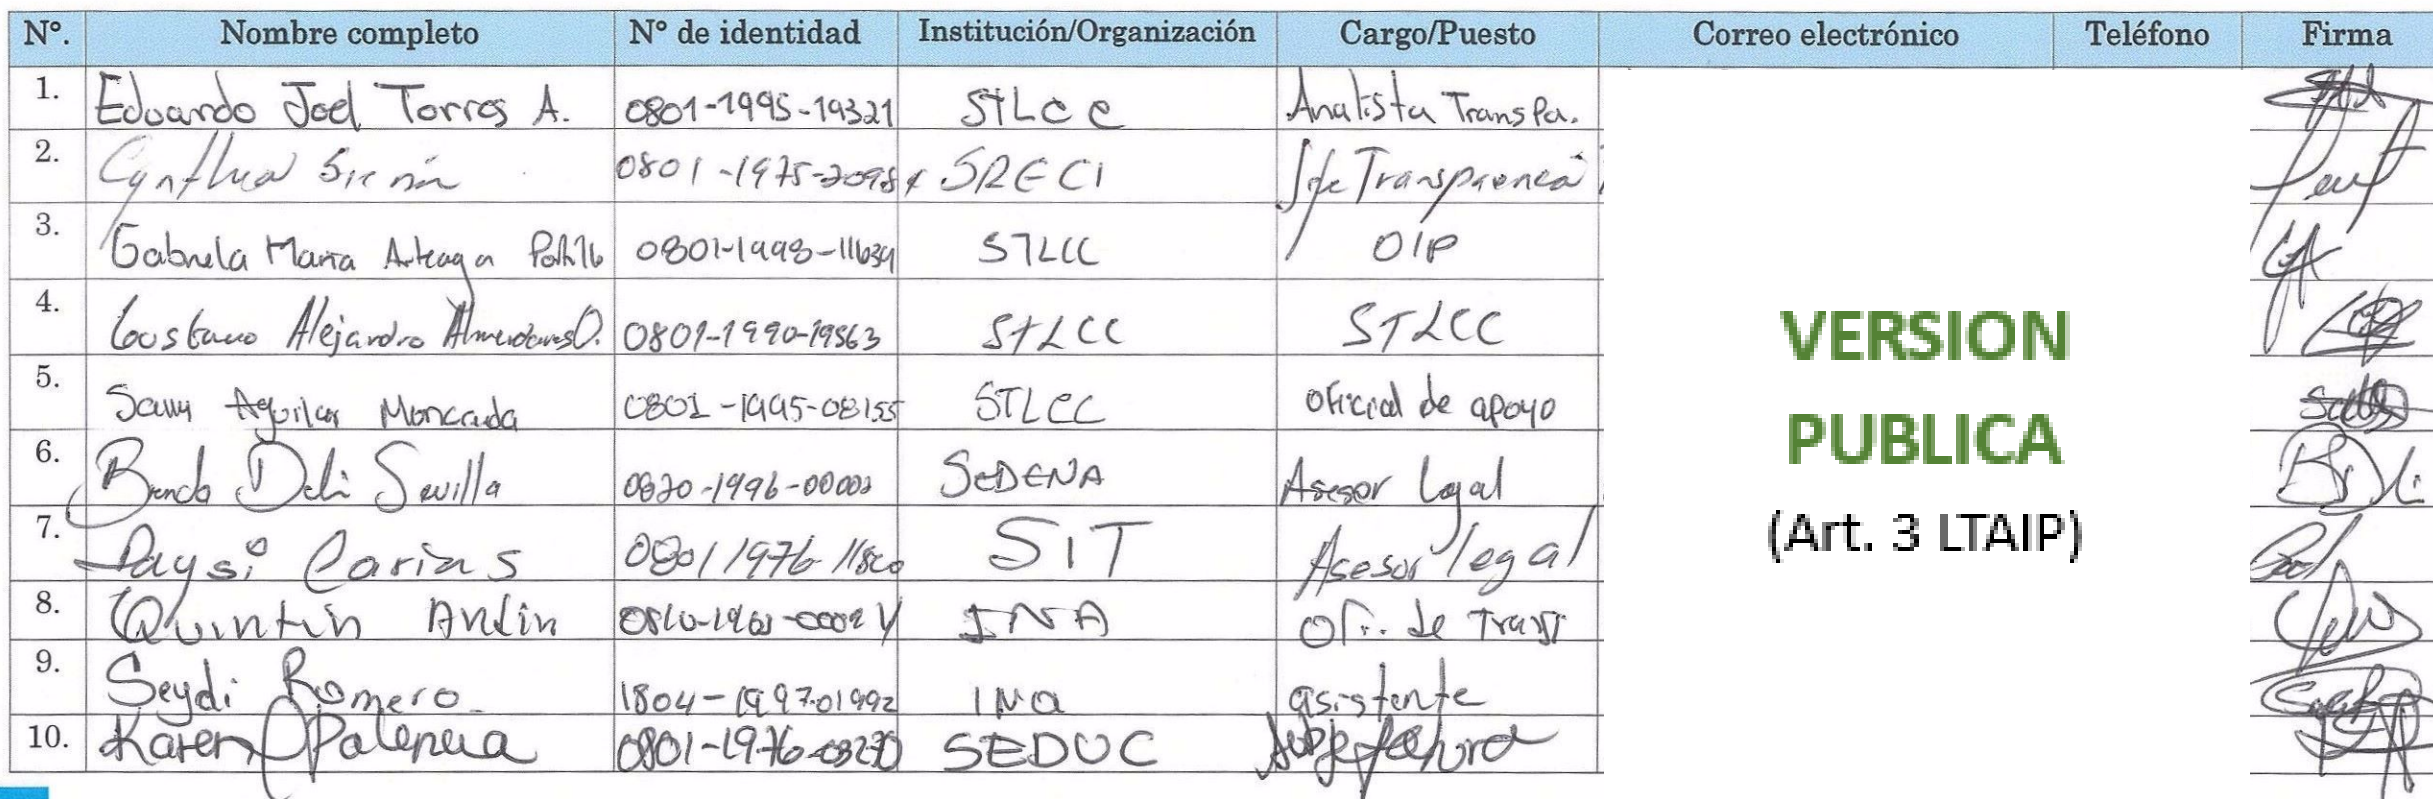 Nº. Nombre completo Nº de identidad Institución/Organización Cargo/Puesto Correo electrónico Teléfono Firma
1. Eduardo Joel Torres A. 0801-1995-19321 STLCC Analista Transpa.
2. Cynthia 0801-1975- SRECI Jefe Transparencia
3. Gabriela Maria Arteaga 0801-1998-11639 STLCC OIP
4. Gustavo Alejandro 0801-1990-19563 STLCC STLCC
5. Aguilar Moncada 0801-1995-08155 STLCC oficial de apoyo
6. Sevilla SEDENA Asesor Legal
7. Daysi Carias 0801 1976 SIT Asesor legal
8. Quintin INA Ofi. de
9. Seydi Romero 1804-1997-01992 INA asistente
10. Karen Palencia 0801-1976-03270 SEDUC
VERSION
PUBLICA
(Art. 3 LTAIP)